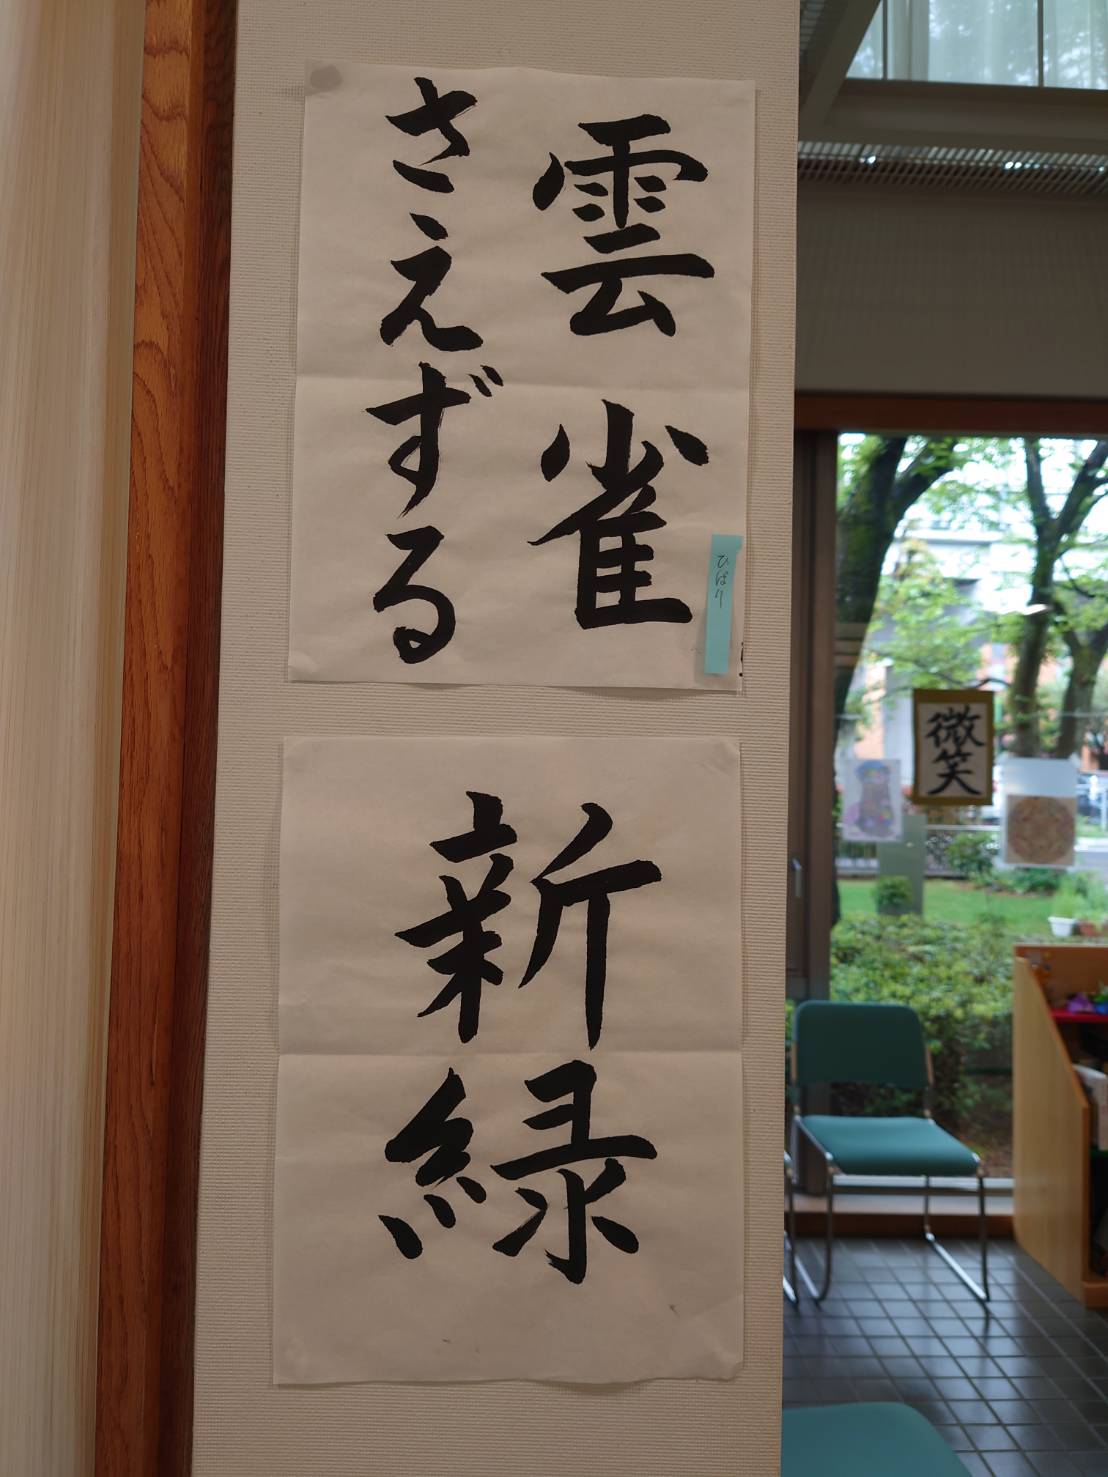 雲雀
さえずる
ひばり
新緑
微笑